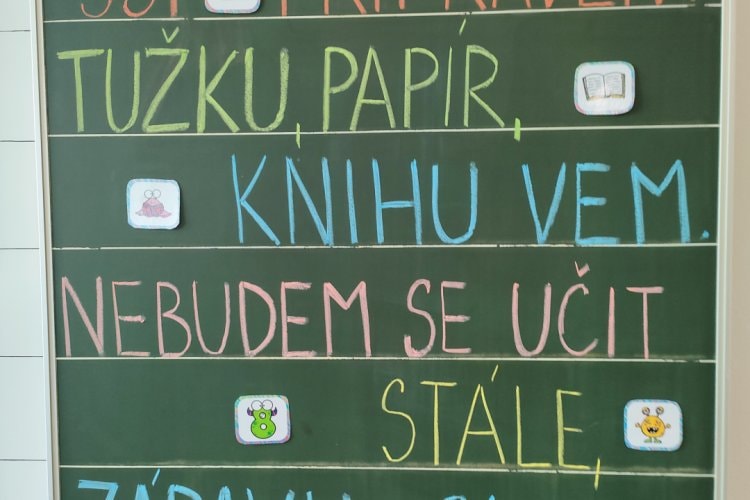 TUŽKU, PAPÍR,
KNIHU VEM.
NEBUDEM SE UČIT
8 STÁLE,